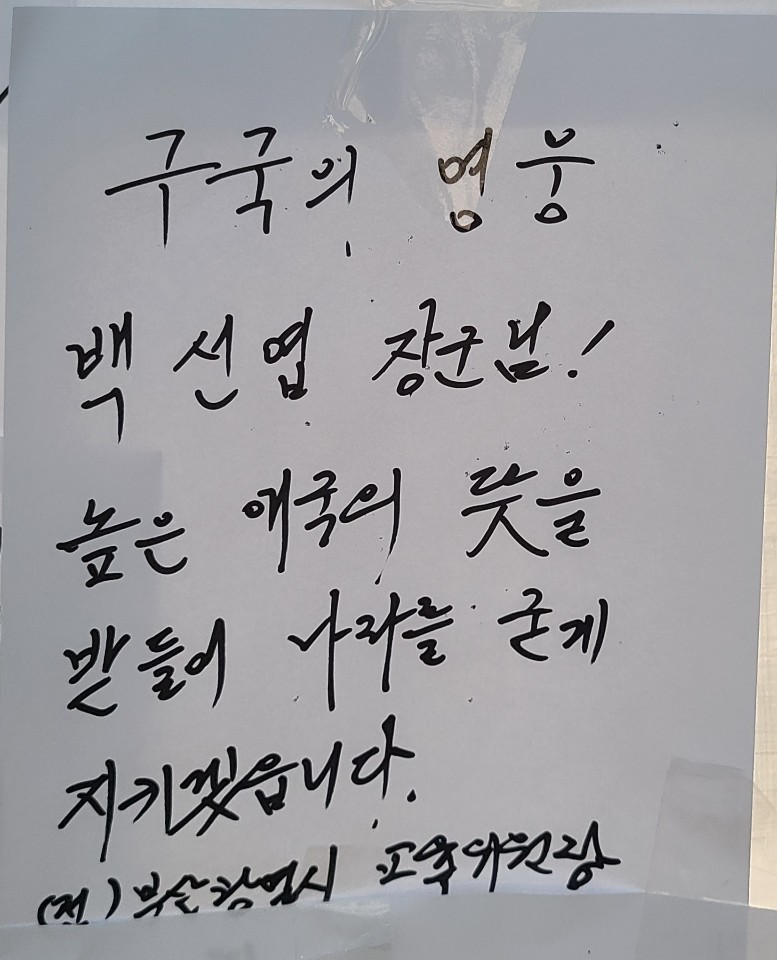 구국의 영웅
백선엽 장군님!
높은 애국의 뜻을
받들어 나라를 굳게
지키겠읍니다.
(전) 부산광역시 교육위원장